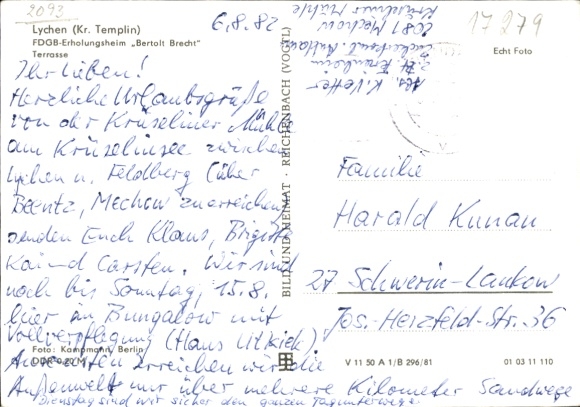 2093
Lychen (Kr. Templin)
FDGB-Erholungsheim „Bertolt Brecht"
Terrasse
6.8.82
Ihr Lieben!
Herzliche Urlaubsgrüße
von der Krüseliner Mühle
am Krüselinsee zwischen
Lychen u. Feldberg (über
Beentz, Mechow zu erreichen)
senden Euch Klaus, Brigitte
Kai und Carsten. Wir sind
noch bis Sonntag, 15.8.
hier in Bungalow mit
Vollverpflegung (Haus Utkiek).
erreichen wir die
Außenwelt nur über mehrere Kilometer Sandwege
Dienstag sind wir sicher den ganzen Tag unterwegs
Foto: Kampmann, Berlin
DDR 0,20 M
BILD UND HEIMAT · REICHENBACH (VOGTL)
Abs. K. Vetter
2081 Mechow
Krüseliner Mühle
17279
Echt Foto
Familie
Harald Kunau
27 Schwerin-Lankow
Jos.-Herzfeld-Str. 36
V 11 50 A 1/B 296/81
01 03 11 110